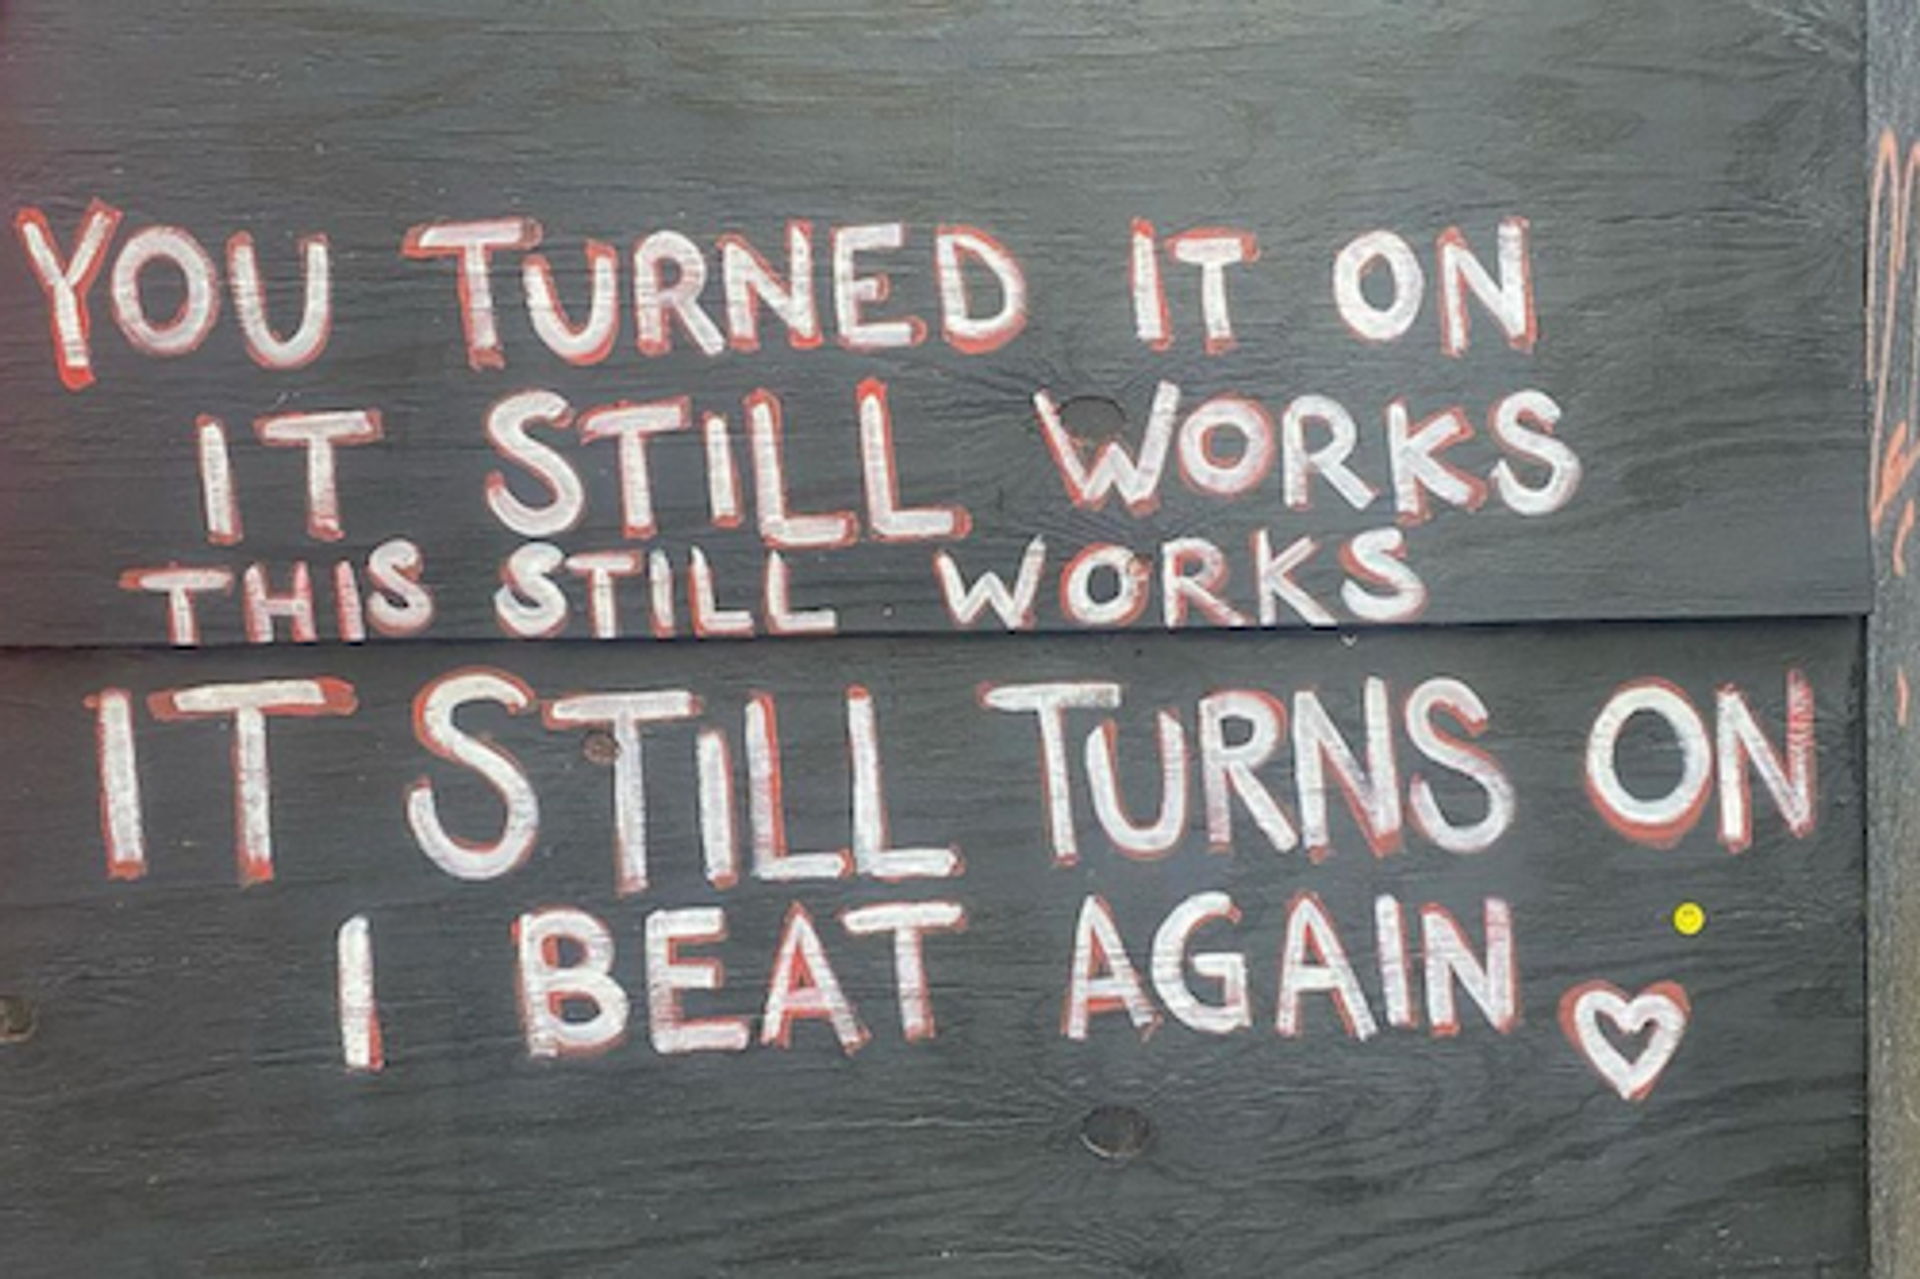 YOU TURNED IT ON
IT STILL WORKS
THIS STILL WORKS
IT STILL TURNS ON
I BEAT AGAIN